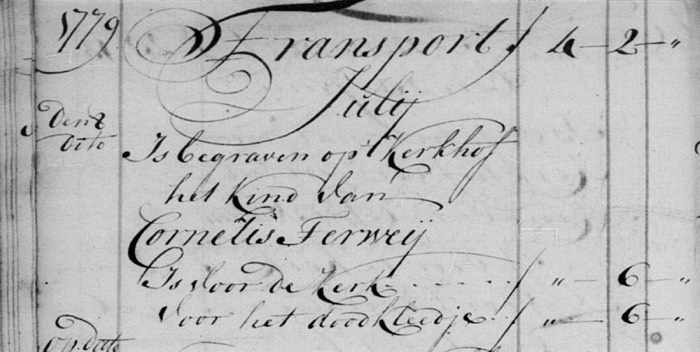 1779 Transport f 4 – 2 – "
Julij
Den 8
Dito
Is begraven op 't Kerkhof
het Kind van
Cornelis Ferweij
Is voor de Kerk - - - - - f " – 6 – "
voor het doodkleedje - - f " – 6 – "
op Dito